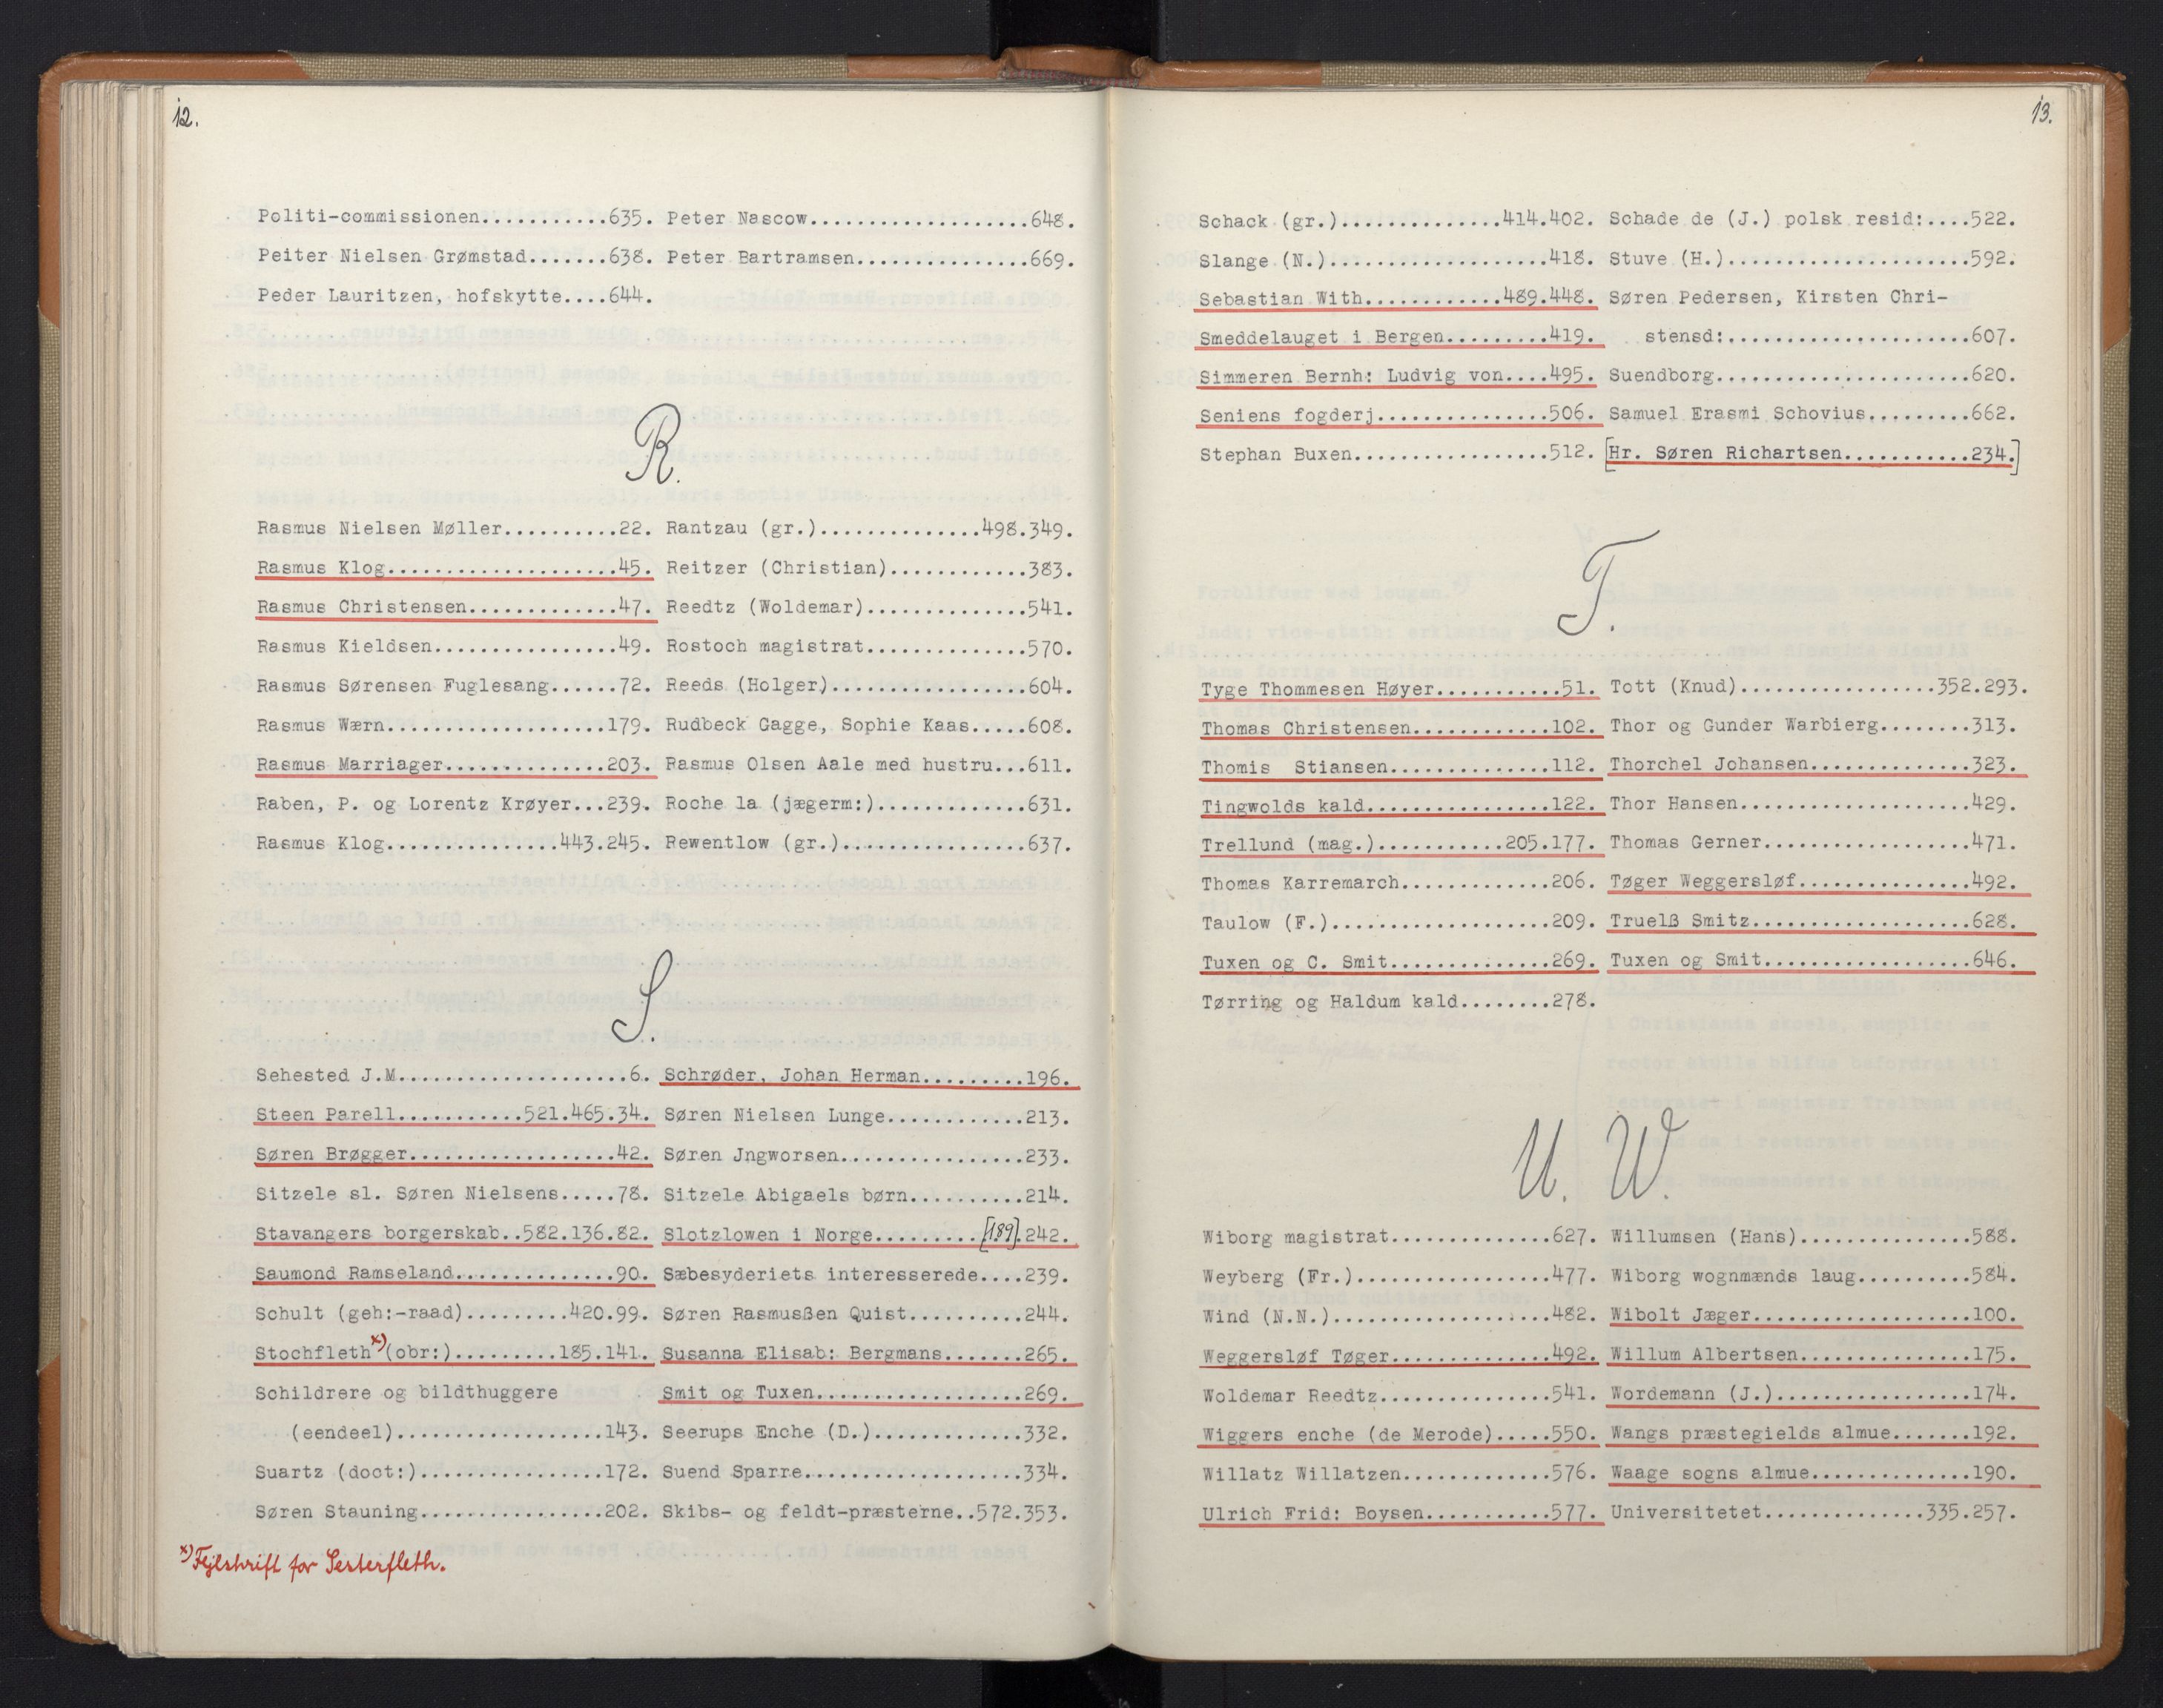 12.
Politi-commissionen...........635.
Peiter Nielsen Grømstad.......638.
Peder Lauritzen, hofskytte....644.
Peter Nascow...................648.
Peter Bartramsen...............669.
R.
Rasmus Nielsen Møller..........22.
Rasmus Klog....................45.
Rasmus Christensen.............47.
Rasmus Kieldsen................49.
Rasmus Sørensen Fuglesang......72.
Rasmus Wærn...................179.
Rasmus Marriager..............203.
Raben, P. og Lorentz Krøyer...239.
Rasmus Klog...............443.245.
Rantzau (gr.)..............498.349.
Reitzer (Christian)............383.
Reedtz (Woldemar)..............541.
Rostoch magistrat..............570.
Reeds (Holger).................604.
Rudbeck Gagge, Sophie Kaas.....608.
Rasmus Olsen Aale med hustru...611.
Roche la (jægerm:).............631.
Rewentlow (gr.)................637.
S.
Sehested J.M....................6.
Steen Parell...........521.465.34.
Søren Brøgger..................42.
Sitzele sl. Søren Nielsens.....78.
Stavangers borgerskab..582.136.82.
Saumond Ramseland..............90.
Schult (geh:-raad).........420.99.
Stochfleth x) (obr:).........185.141.
Schildrere og bildthuggere
(eendeel)..................143.
Suartz (doct:)................172.
Søren Stauning................202.
Schrøder, Johan Herman.........196.
Søren Nielsen Lunge............213.
Søren Jngworsen................233.
Sitzele Abigaels børn..........214.
Slotzlowen i Norge.........[189].242.
Sæbesyderiets interesserede....239.
Søren Rasmusßen Quist..........244.
Susanna Elisab: Bergmans.......265.
Smit og Tuxen..................269.
Seerups Enche (D.).............332.
Suend Sparre...................334.
Skibs- og feldt-præsterne..572.353.
x) Fejlskrift for Sesterfleth.
13.
Schack (gr.)..............414.402.
Slange (N.)...................418.
Sebastian With............489.448.
Smeddelauget i Bergen.........419.
Simmeren Bernh: Ludvig von....495.
Seniens fogderj...............506.
Stephan Buxen.................512.
Schade de (J.) polsk resid:....522.
Stuve (H.).....................592.
Søren Pedersen, Kirsten Chri-
stensd:.....................607.
Suendborg......................620.
Samuel Erasmi Schovius.........662.
[Hr. Søren Richartsen...........234.]
T.
Tyge Thommesen Høyer...........51.
Thomas Christensen............102.
Thomis Stiansen..............112.
Tingwolds kald................122.
Trellund (mag.)...........205.177.
Thomas Karremarch.............206.
Taulow (F.)...................209.
Tuxen og C. Smit..............269.
Tørring og Haldum kald........278.
Tott (Knud).................352.293.
Thor og Gunder Warbierg........313.
Thorchel Johansen..............323.
Thor Hansen....................429.
Thomas Gerner..................471.
Tøger Weggersløf...............492.
Truelß Smitz...................628.
Tuxen og Smit..................646.
U. W.
Wiborg magistrat..............627.
Weyberg (Fr.).................477.
Wind (N.N.)...................482.
Weggersløf Tøger..............492.
Woldemar Reedtz...............541.
Wiggers enche (de Merode).....550.
Willatz Willatzen.............576.
Ulrich Frid: Boysen...........577.
Willumsen (Hans)...............588.
Wiborg wognmænds laug..........584.
Wibolt Jæger...................100.
Willum Albertsen...............175.
Wordemann (J.).................174.
Wangs præstegields almue.......192.
Waage sogns almue..............190.
Universitetet..............335.257.